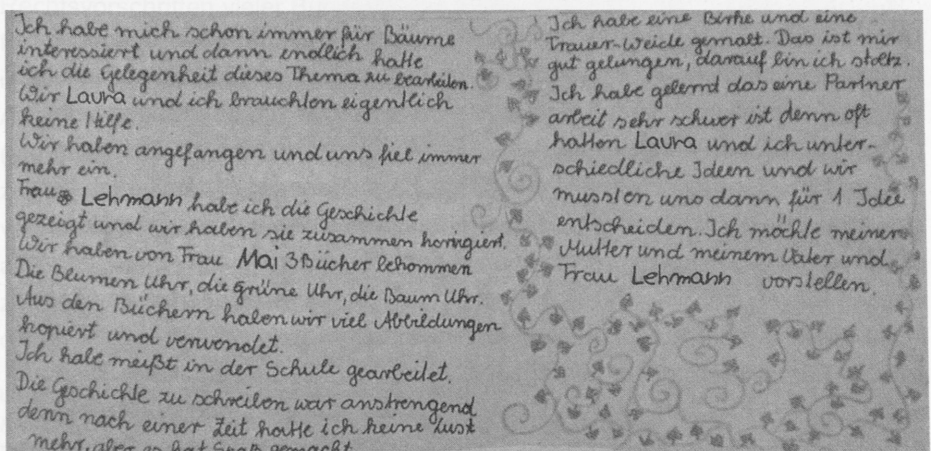 Ich habe mich schon immer für Bäume
interessiert und dann endlich hatte
ich die Gelegenheit dieses Thema zu bearbeiten.
Wir Laura und ich brauchten eigentlich
keine Hilfe.
Wir haben angefangen und uns fiel immer
mehr ein.
Frau Lehmann habe ich die Geschichte
gezeigt und wir haben sie zusammen korrigiert.
Wir haben von Frau Mai 3 Bücher bekommen
Die Blumen Uhr, die grüne Uhr, die Baum Uhr.
Aus den Büchern haben wir viel Abbildungen
kopiert und verwendet.
Ich habe meißt in der Schule gearbeitet.
Die Geschichte zu schreiben war anstrengend
denn nach einer Zeit hatte ich keine Lust
mehr, aber es hat Spaß gemacht
Ich habe eine Birke und eine
Trauer-Weide gemalt. Das ist mir
gut gelungen, darauf bin ich stoltz.
Ich habe gelernd das eine Partner
arbeit sehr schwer ist denn oft
hatten Laura und ich unter-
schiedliche Ideen und wir
mussten uns dann für 1 Idee
entscheiden. Ich möchte meiner
Mutter und meinem Vater und
Frau Lehmann vorstellen.